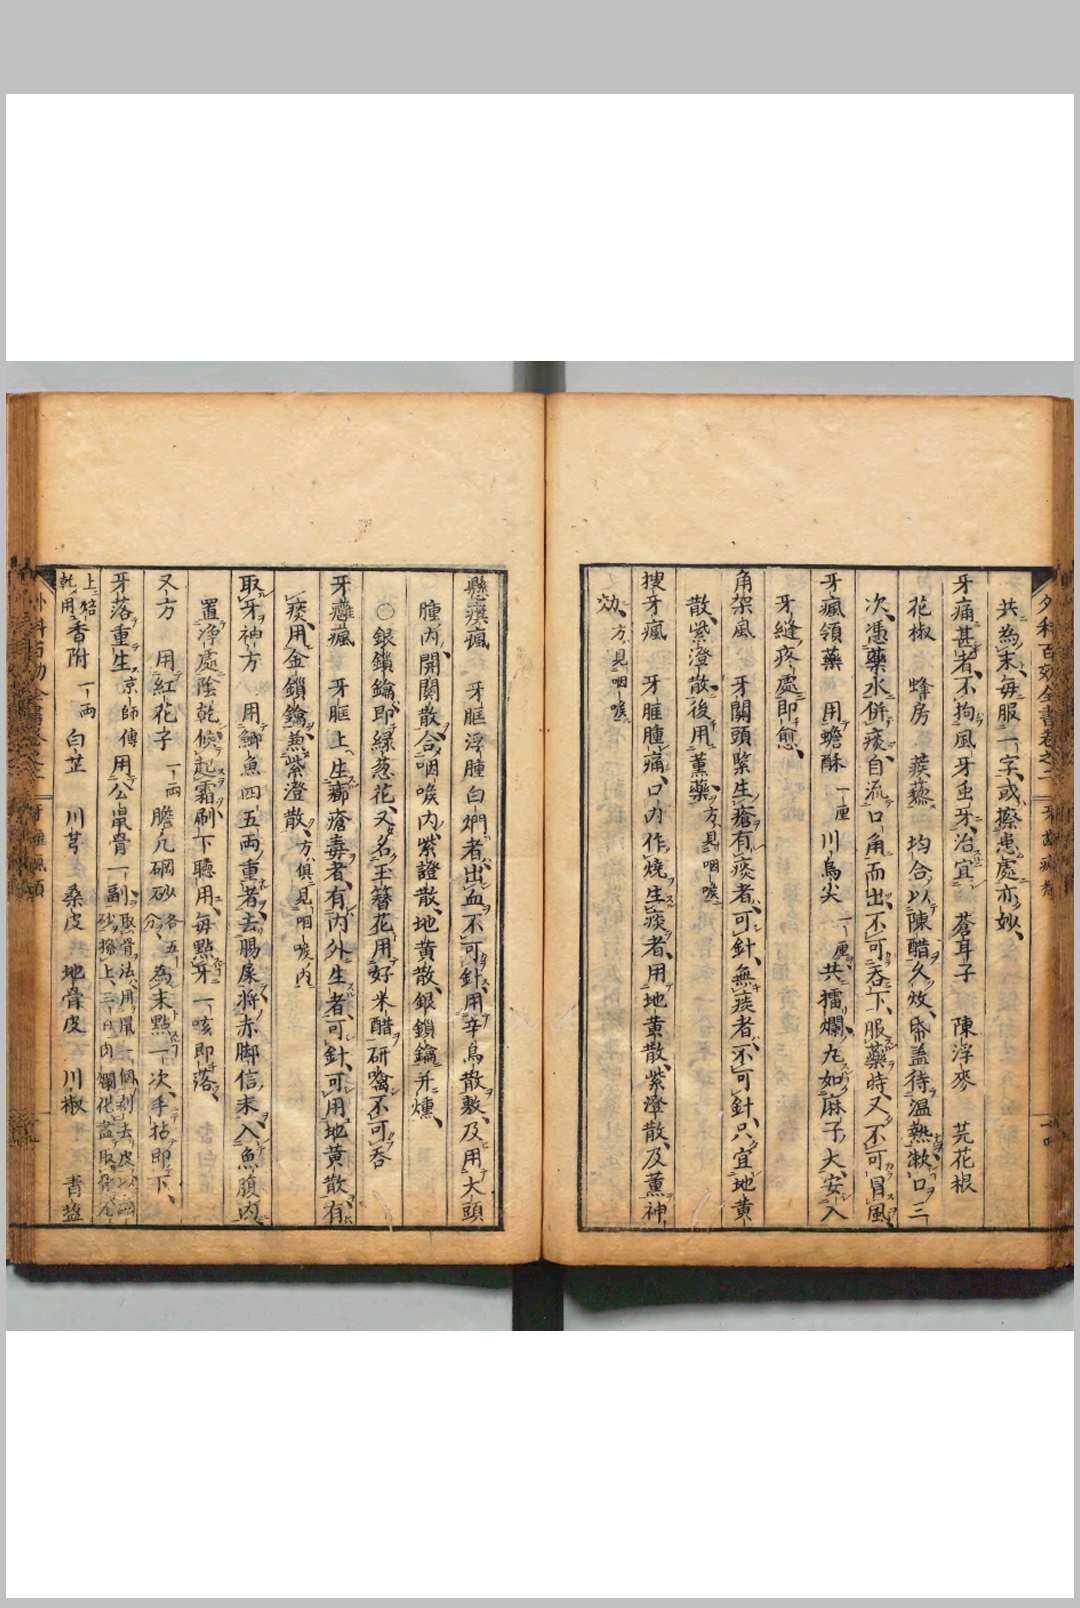 共為末每服一字或擦患處亦妙
牙痛甚者不拘風牙虫牙治宜 蒼耳子 陳浮麥 芫花根
花椒 蜂房 蒺藜 均合以陳醋久炆帋盖待温熱漱口三
次憑藥水併痰自流口角而出不可吞下服藥時又不可冒風
牙瘋領藥 用蟾酥一厘 川烏尖一厘共擂爛丸如麻子大安入
牙縫疼處即愈
角架風 牙關頭緊生瘡有痰者可針無痰者不可針只宜地黄
散紫澄散後用薰藥方見咽喉
搜牙瘋 牙眶腫痛口內作燒生痰者用地黄散紫澄散及薰神
効方見咽喉
懸瘼瘋 牙眶浮腫白爛者出血不可針用辛烏散敷及用大頭
腫內開關散合咽喉內紫證散地黄散銀鎖鑰并燻
○銀鎖鑰即緑葱花又名玉簪花用好米醋研噙不可吞
牙瘋 牙眶上生瘡毒者有內外生者可針可用地黄散有
痰用金鎖鑰兼紫澄散方俱見咽喉內
取牙神方 用鯽魚四五両重者去腸屎將赤脚信末入魚腹內
置淨處陰乾候起霜刷下聽用每點牙一咳即落
又方 用紅花子一両 膽凢硇砂各五分為末點一次手拈即下
牙落重生京師傳用公鼠骨一副取骨法用鼠一個剥去皮以硇
砂擦上三日肉爛化盡取骨瓦
上焙乾用香附一両 白芷 川芎 桑皮 地骨皮 川椒 青盐